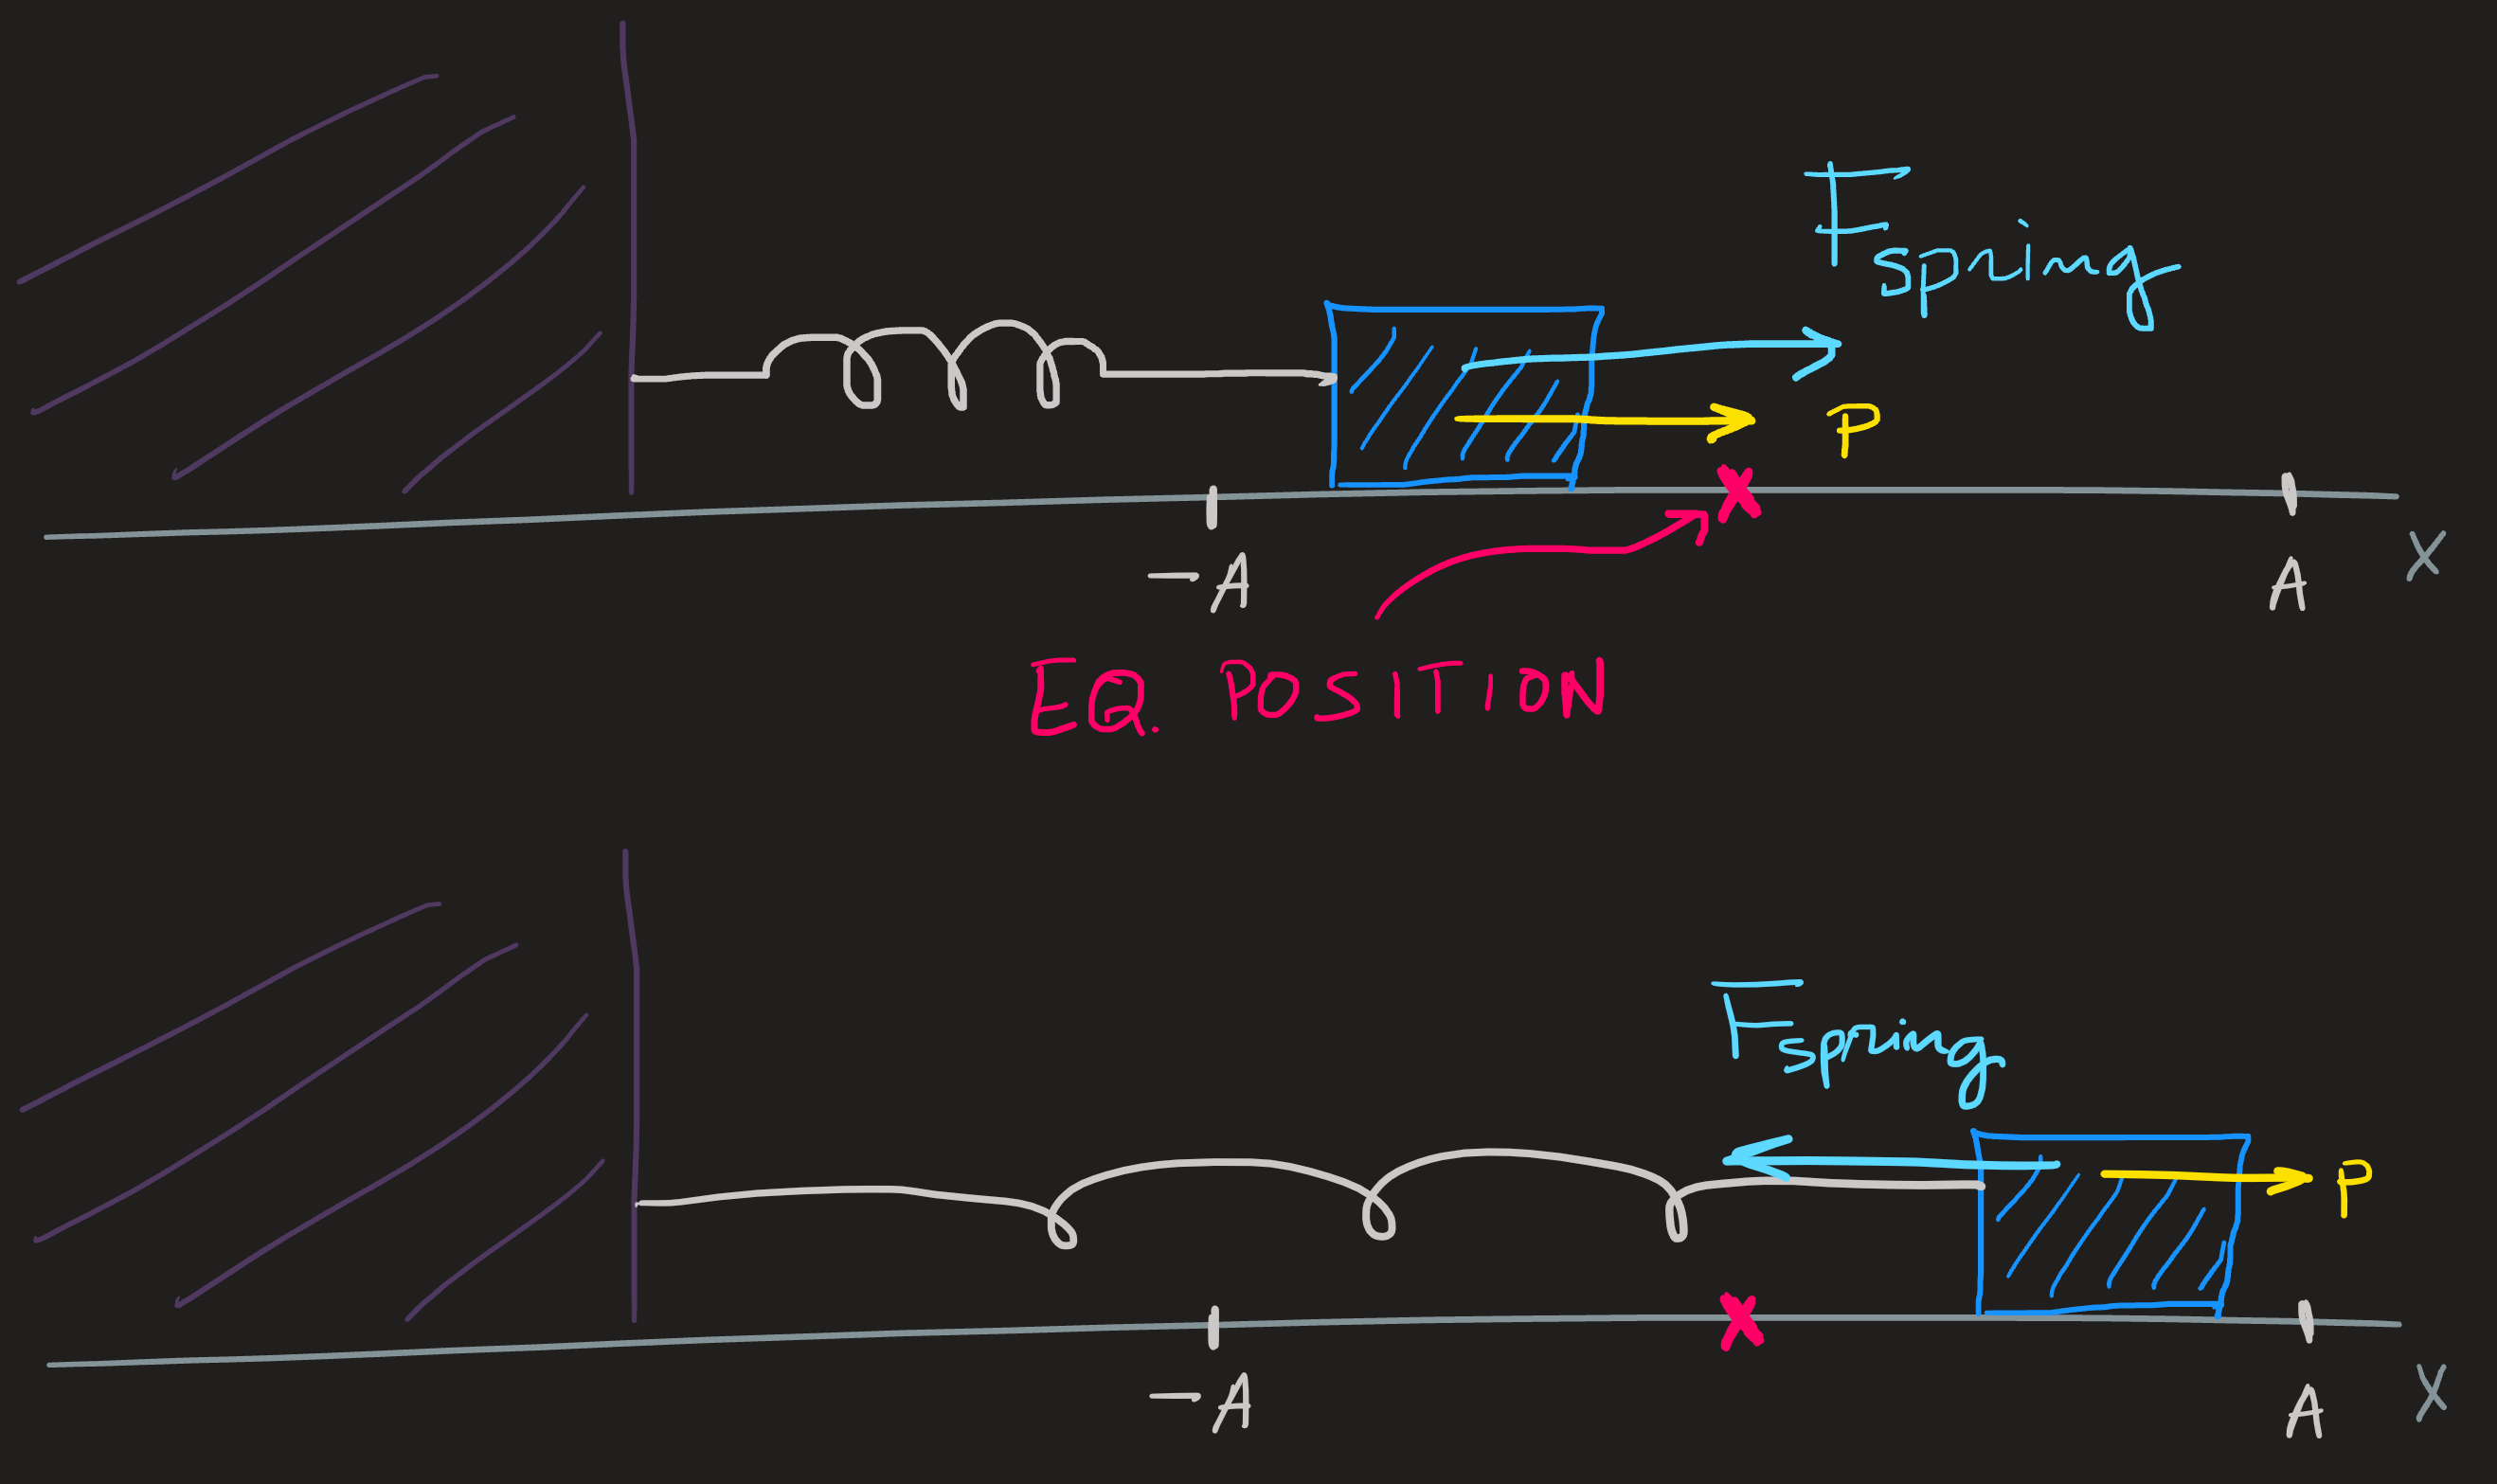 F spring
P
-A
A
X
EQ. POSITION
F spring
P
-A
A
X